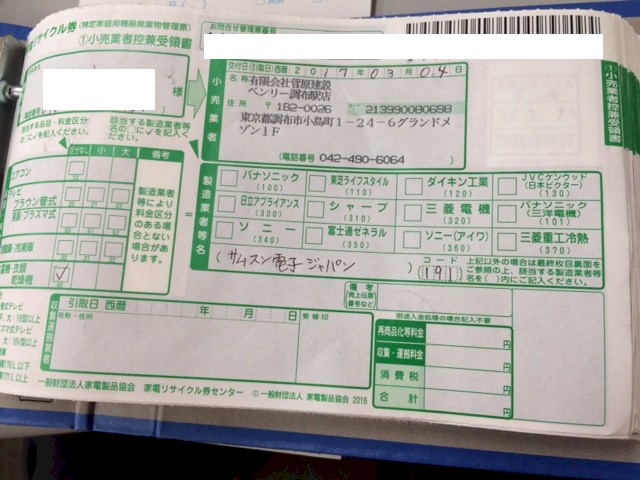 リサイクル券 (特定家庭用機器廃棄物管理票)
①小売業者控兼受領書
お問合せ管理票番号
交付日(引取日)西暦 2017年03月04日
小売業者
名称 有限会社菅原建設
ベンリー調布駅店
住所 〒182-0026 213990080698
東京都調布市小島町1-24-6グランドメ
ゾン1F
(電話番号 042-490-6064 )
様
①小売業者控兼受領書
品目・料金区分
に✓を記入ください
該当する製造業者等
名の□に✓を記入ください
区分なし 小 大 備考
エアコン
テレビ
ブラウン管式
液晶・プラズマ式
冷蔵庫・冷凍庫
洗濯機・衣類
乾燥機 ✓
製造業者
等により
料金区分
のある場
合とない
場合があ
ります。
製造業者等名
パナソニック (100)
東芝ライフスタイル (110)
ダイキン工業 (120)
JVCケンウッド (日本ビクター) (130)
日立アプライアンス (300)
シャープ (310)
三菱電機 (320)
パナソニック (三洋電機) (101)
ソニー (340)
富士通ゼネラル (350)
ソニー(アイワ) (360)
三菱重工冷熱 (370)
サムスン電子ジャパン
コード 191
上記以外の場合は最終枚目裏面を
ご参照の上、該当する製造業者等
名、( )内にご記入ください。
備考
(売上伝票番号など)
収集運搬業者
引取日 西暦 年 月 日
名称・住所
受領印
別途入金処理の場合記入不要
再商品化等料金 円
収集・運搬料金 円
消費税 円
合計 円
一般財団法人家電製品協会 家電リサイクル券センター © 一般財団法人 家電製品協会 2016